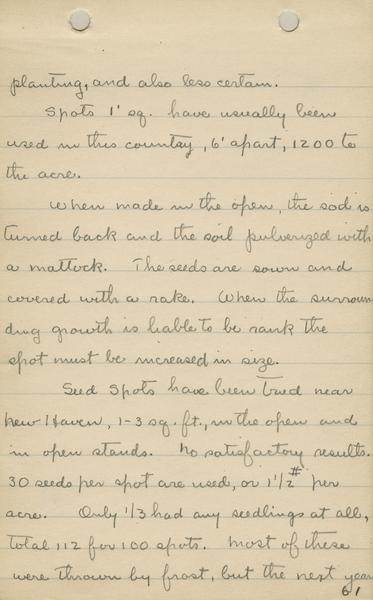 planting, and also less certain.
Spots 1' sq. have usually been
used in this country, 6' apart, 1200 to
the acre.
When made in the open, the sod is
turned back and the soil pulverized with
a mattock. The seeds are sown and
covered with a rake. When the surroun
ding growth is liable to be rank the
spot must be increased in size.
Seed Spots have been tried near
New Haven, 1-3 sq. ft., in the open and
in open stands. No satisfactory results.
30 seeds per spot are used, or 1 1/2 # per
acre. Only 1/3 had any seedlings at all,
total 112 for 100 spots. Most of these
were thrown by frost, but the next year
61